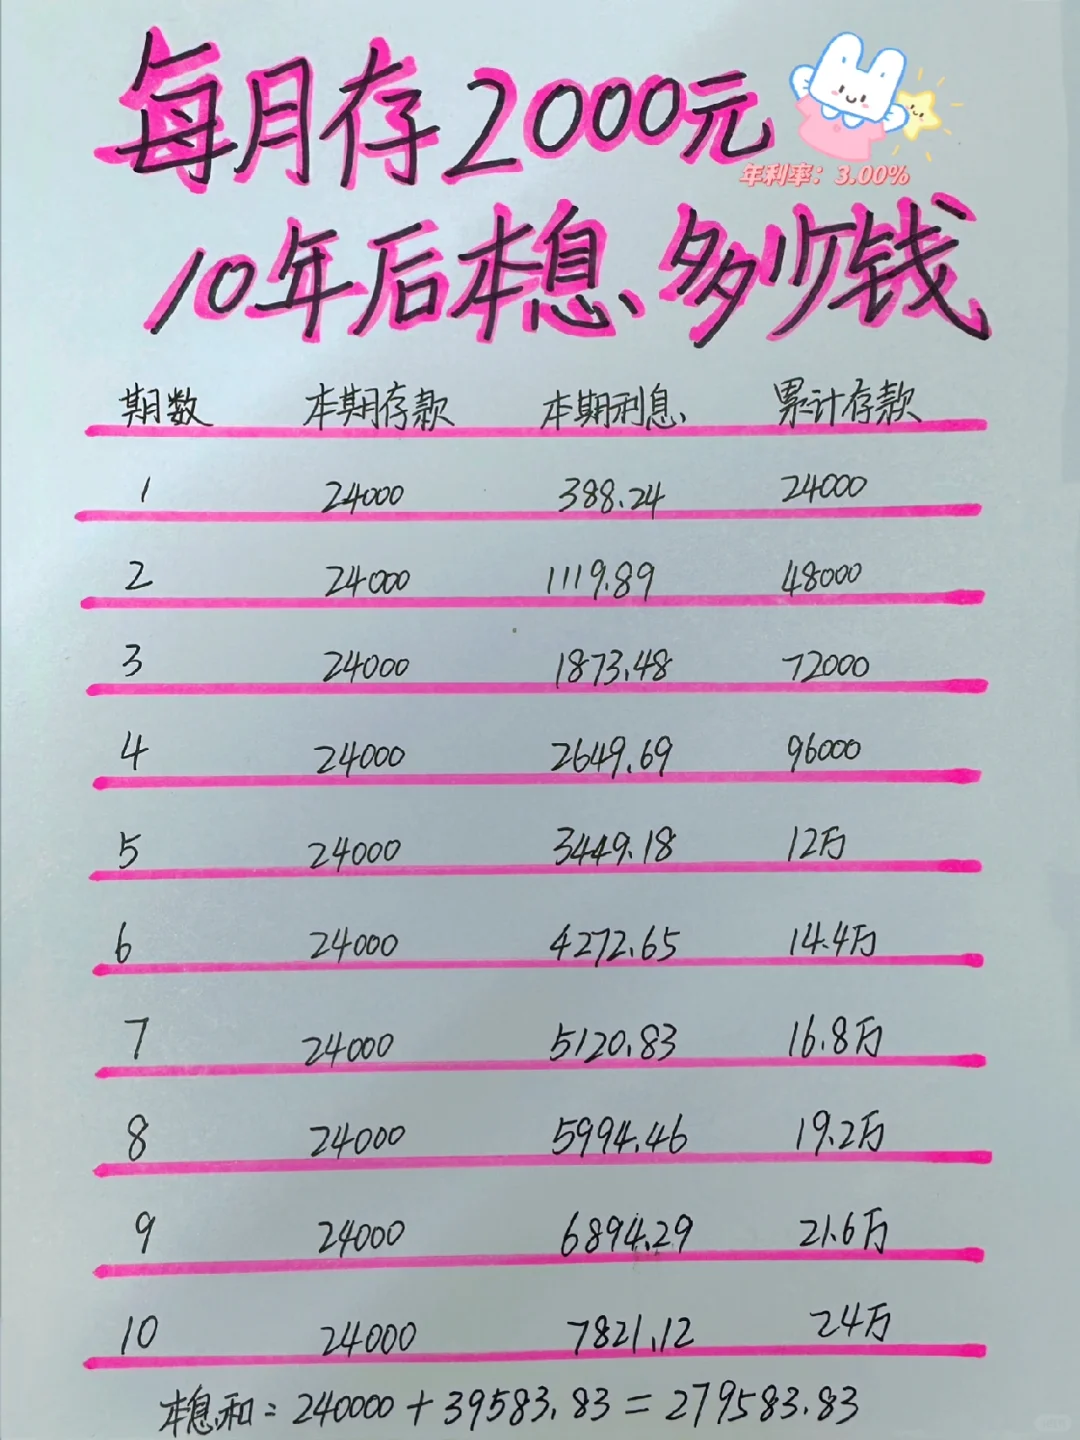 每月存2000元
年利率：3.00%
10年后本息多少钱
期数 本期存款 本期利息 累计存款
1 24000 388.24 24000
2 24000 1119.89 48000
3 24000 1873.48 72000
4 24000 2649.69 96000
5 24000 3449.18 12万
6 24000 4272.65 14.4万
7 24000 5120.83 16.8万
8 24000 5994.46 19.2万
9 24000 6894.29 21.6万
10 24000 7821.12 24万
本息和：240000+39583.83=279583.83